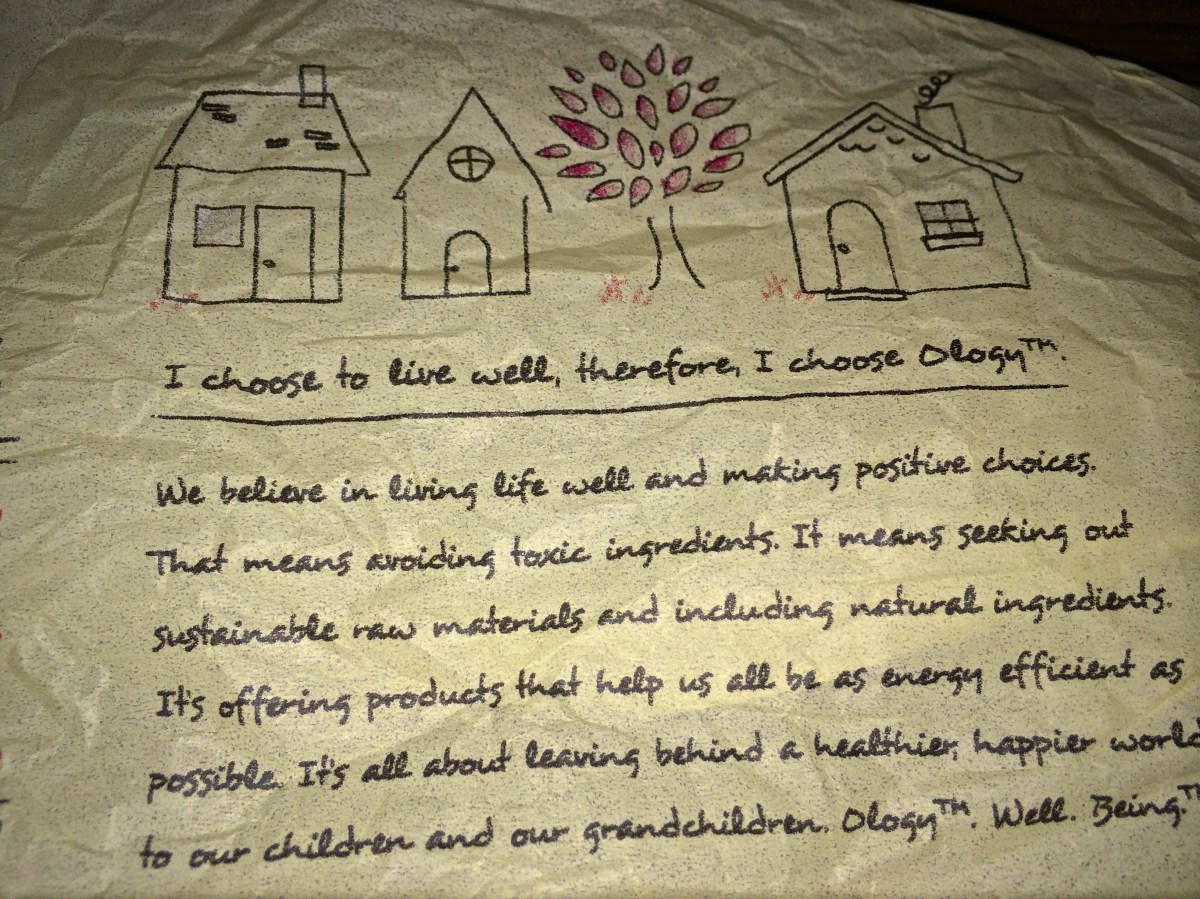 I choose to live well, therefore, I choose Ology™.
We believe in living life well and making positive choices.
That means avoiding toxic ingredients. It means seeking out
sustainable raw materials and including natural ingredients.
It's offering products that help us all be as energy efficient as
possible. It's all about leaving behind a healthier, happier world
to our children and our grandchildren. Ology™. Well. Being.™